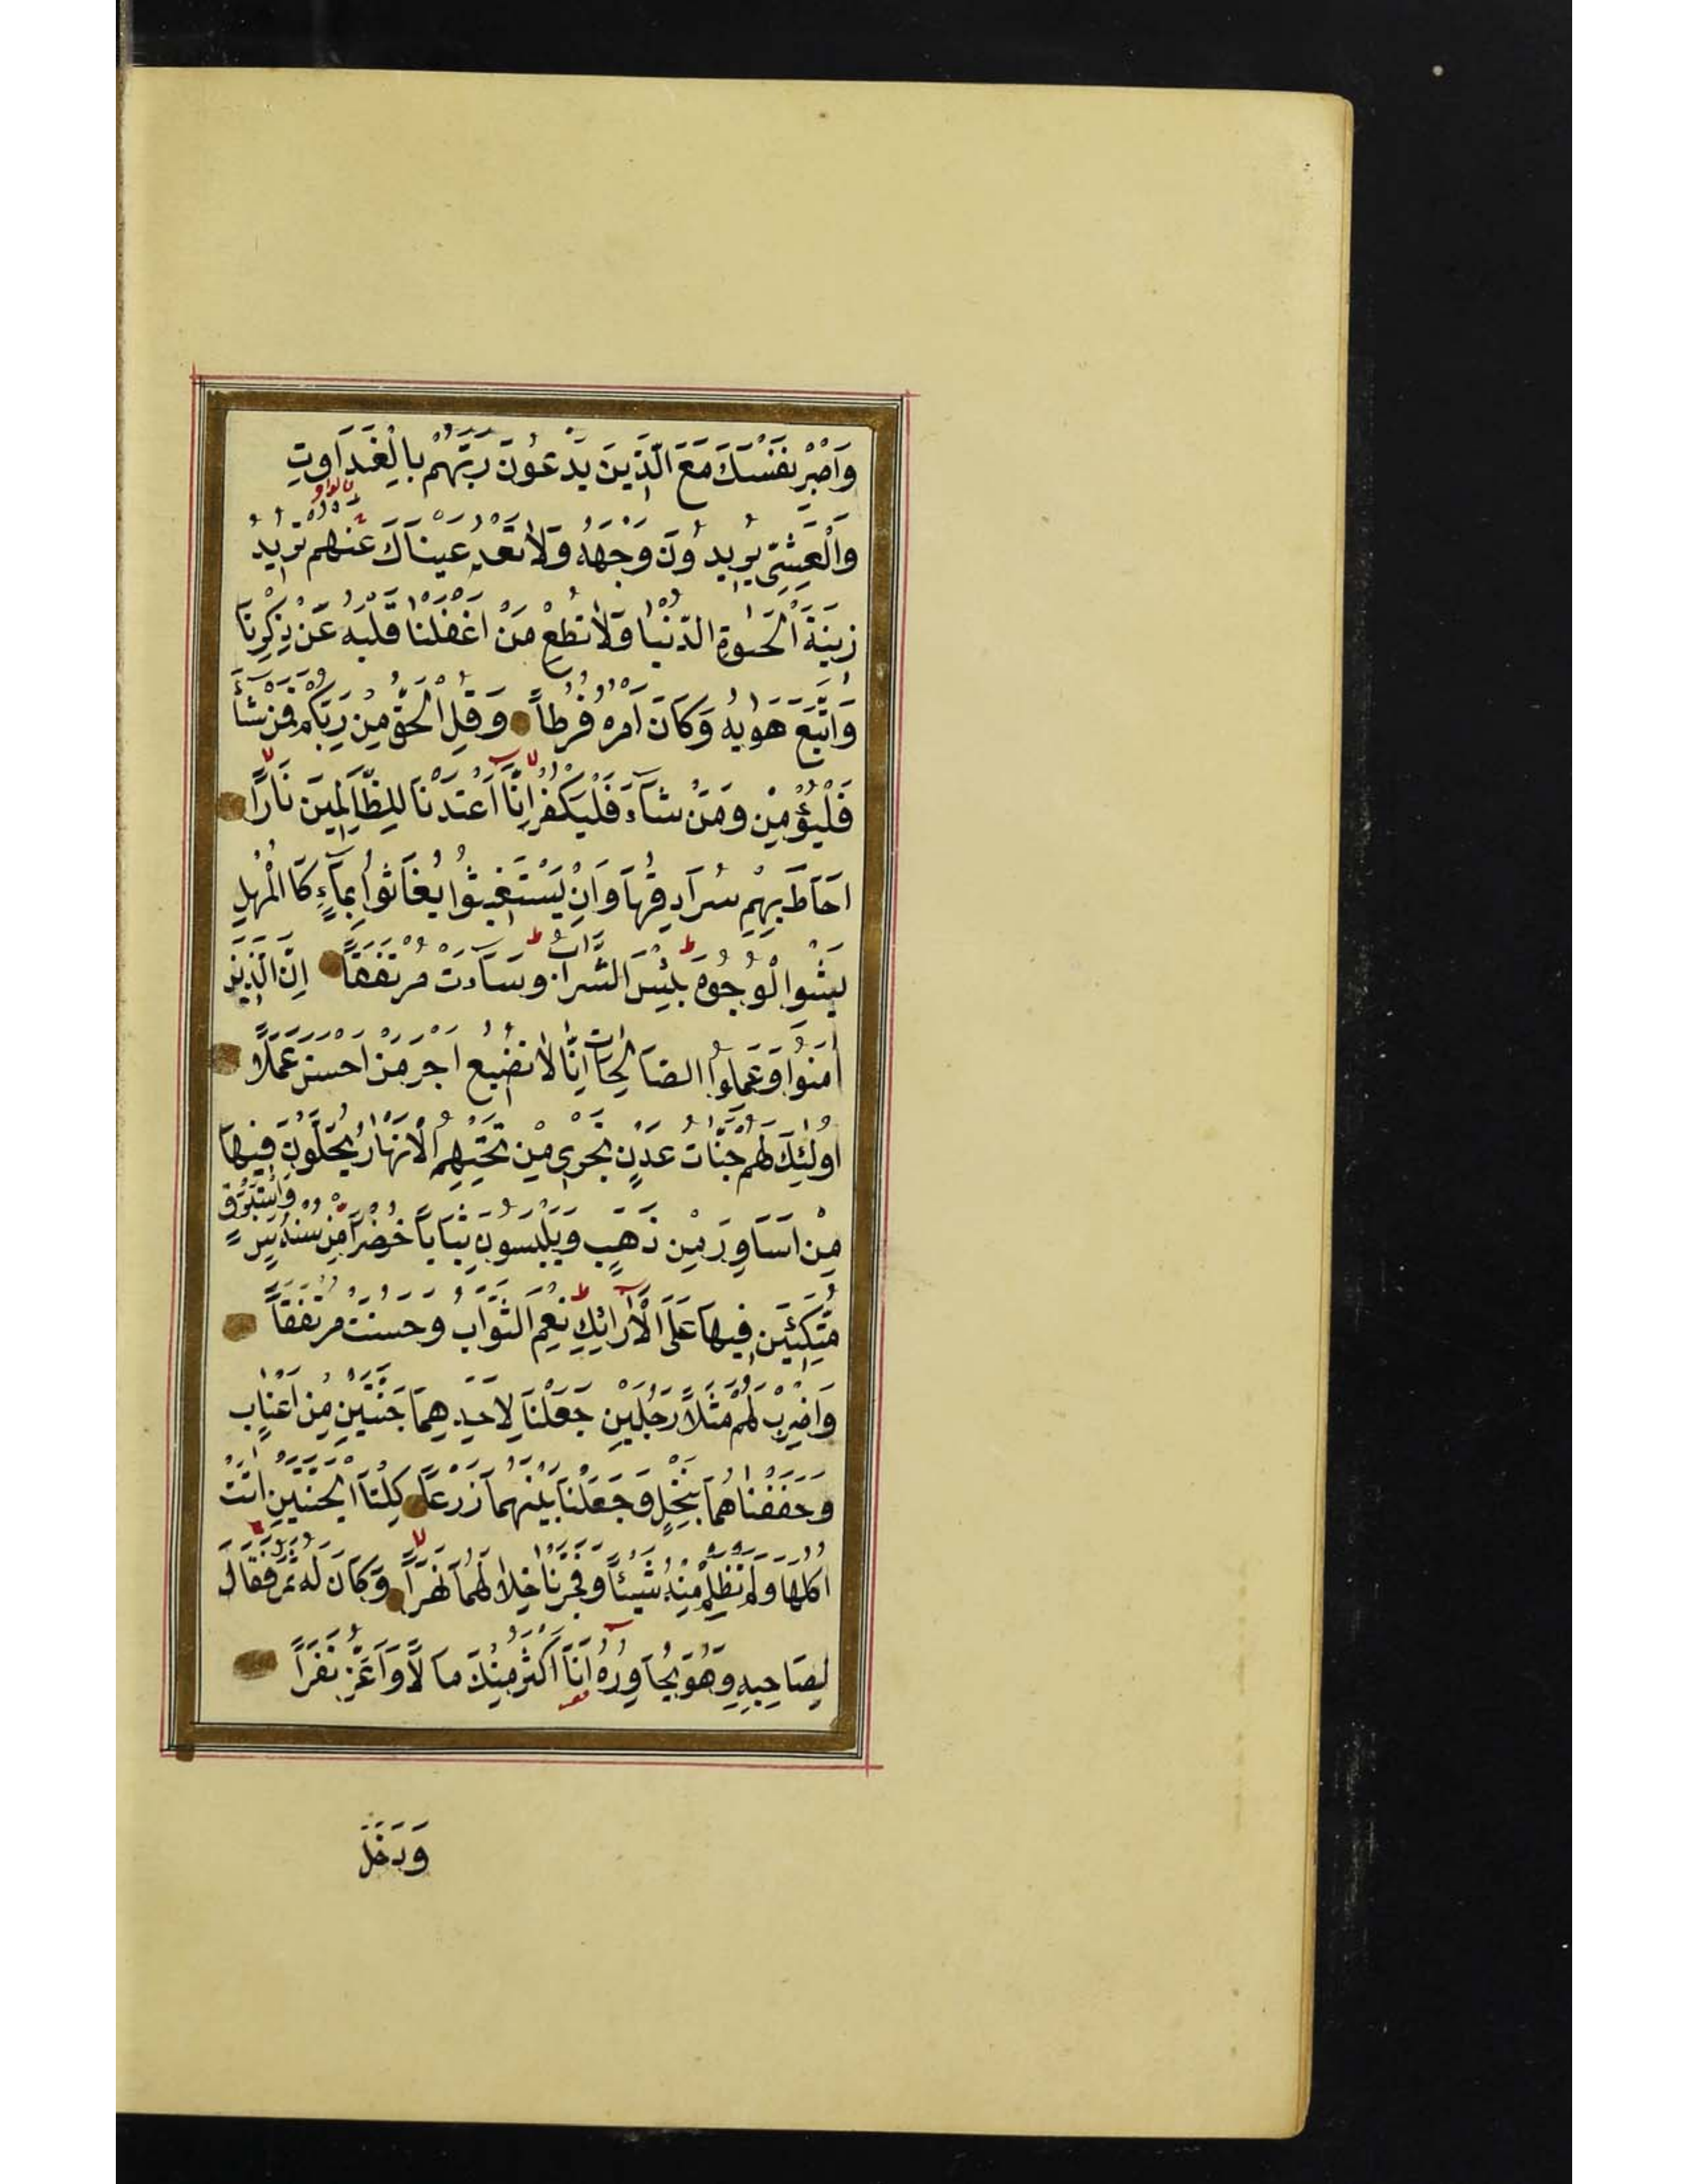 وَاصْبِرْ نَفْسَكَ مَعَ الَّذِينَ يَدْعُونَ رَبَّهُمْ بِالْغَدَاوتِ
وَالْعَشِيِّ يُرِيدُونَ وَجْهَهُ وَلَا تَعْدُ عَيْنَاكَ عَنْهُمْ تُرِيدُ
زِينَةَ الْحَيٰوةِ الدُّنْيَا وَلَا تُطِعْ مَنْ اَغْفَلْنَا قَلْبَهُ عَنْ ذِكْرِنَا
وَاتَّبَعَ هَوٰيهُ وَكَانَ اَمْرُهُ فُرُطاً وَقُلِ الْحَقُّ مِنْ رَبِّكُمْ فَمَنْ شَآءَ
فَلْيُؤْمِنْ وَمَنْ شَآءَ فَلْيَكْفُرْ اِنَّا اَعْتَدْنَا لِلظَّالِمِينَ نَارًا
اَحَاطَ بِهِمْ سُرَادِقُهَا وَاِنْ يَسْتَغِيثُوا يُغَاثُوا بِمَآءٍ كَا الْمُهْلِ
يَشْوِالْوُجُوهَ بِئْسَ الشَّرَابُ وَسَآءَتْ مُرْتَفَقاً اِنَّ الَّذِينَ
اٰمَنُوا وَعَمِلُوا الصَّالِحَاتِ اِنَّا لَا نُضِيعُ اَجْرَ مَنْ اَحْسَنَ عَمَلًا
اُولٰئِكَ لَهُمْ جَنَّاتُ عَدْنٍ تَجْرِى مِنْ تَحْتِهِمُ الْاَنْهَارُ يُحَلَّوْنَ فِيهَا
مِنْ اَسَاوِرَ مِنْ ذَهَبٍ وَيَلْبَسُونَ ثِيَاباً خُضْراً مِنْ سُنْدُسٍ وَاِسْتَبْرَقٍ
مُتَّكِئِينَ فِيهَا عَلَى الْاَرَآئِكِ نِعْمَ الثَّوَابُ وَحَسُنَتْ مُرْتَفَقاً
وَاضْرِبْ لَهُمْ مَثَلًا رَجُلَيْنِ جَعَلْنَا لِاَحَدِهِمَا جَنَّتَيْنِ مِنْ اَعْنَابٍ
وَحَفَفْنَاهُمَا بِنَخْلٍ وَجَعَلْنَا بَيْنَهُمَا زَرْعاً كِلْتَا الْجَنَّتَيْنِ اٰتَتْ
اُكُلَهَا وَلَمْ تَظْلِمْ مِنْهُ شَيْئاً وَفَجَّرْنَا خِلَالَهُمَا نَهَراً وَكَانَ لَهُ ثَمَرٌ فَقَالَ
لِصَاحِبِهِ وَهُوَ يُحَاوِرُهُ اَنَا اَكْثَرُ مِنْكَ مَالًا وَاَعَزُّ نَفَراً
وَدَخَلَ